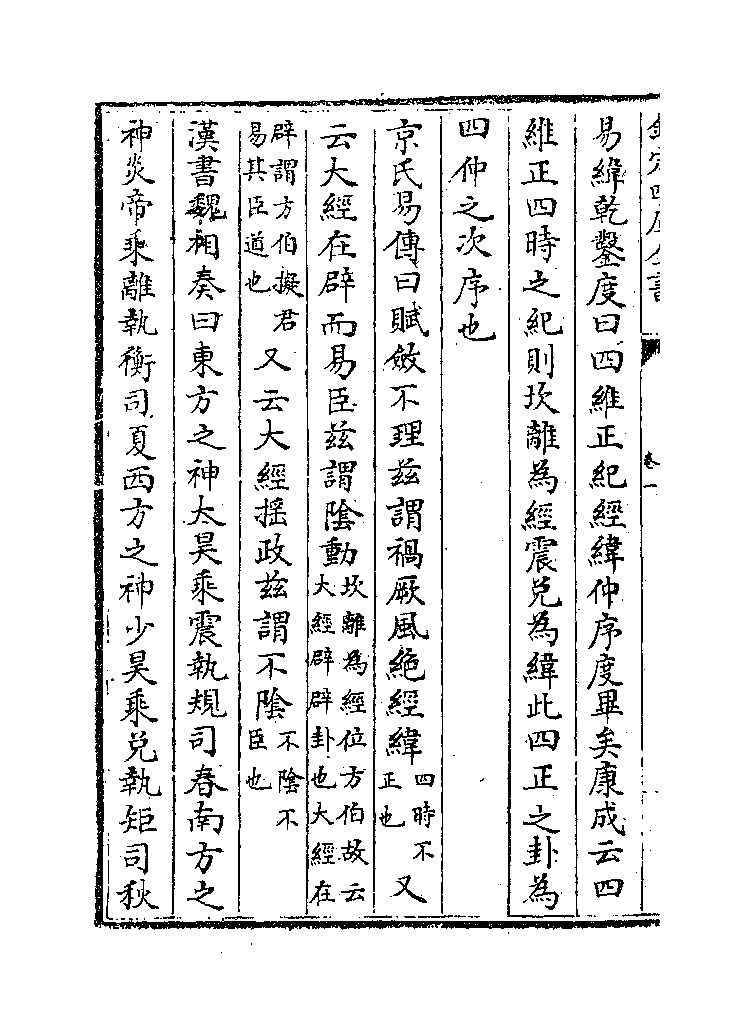 欽定四庫全書 卷一
易緯乾鑿度曰四維正紀經緯仲序度畢矣康成云四
維正四時之紀則坎離為經震兌為緯此四正之卦為
四仲之次序也
京氏易傳曰賦斂不理茲謂禍厥風絶經緯四時不正也又
云大經在辟而易臣茲謂陰動坎離為經位方伯故云大經辟辟卦也大經在
辟謂方伯擬君易其臣道也又云大經揺政茲謂不陰不陰不臣也
漢書魏相奏曰東方之神太昊乘震執規司春南方之
神炎帝乘離執衡司夏西方之神少昊乘兌執矩司秋